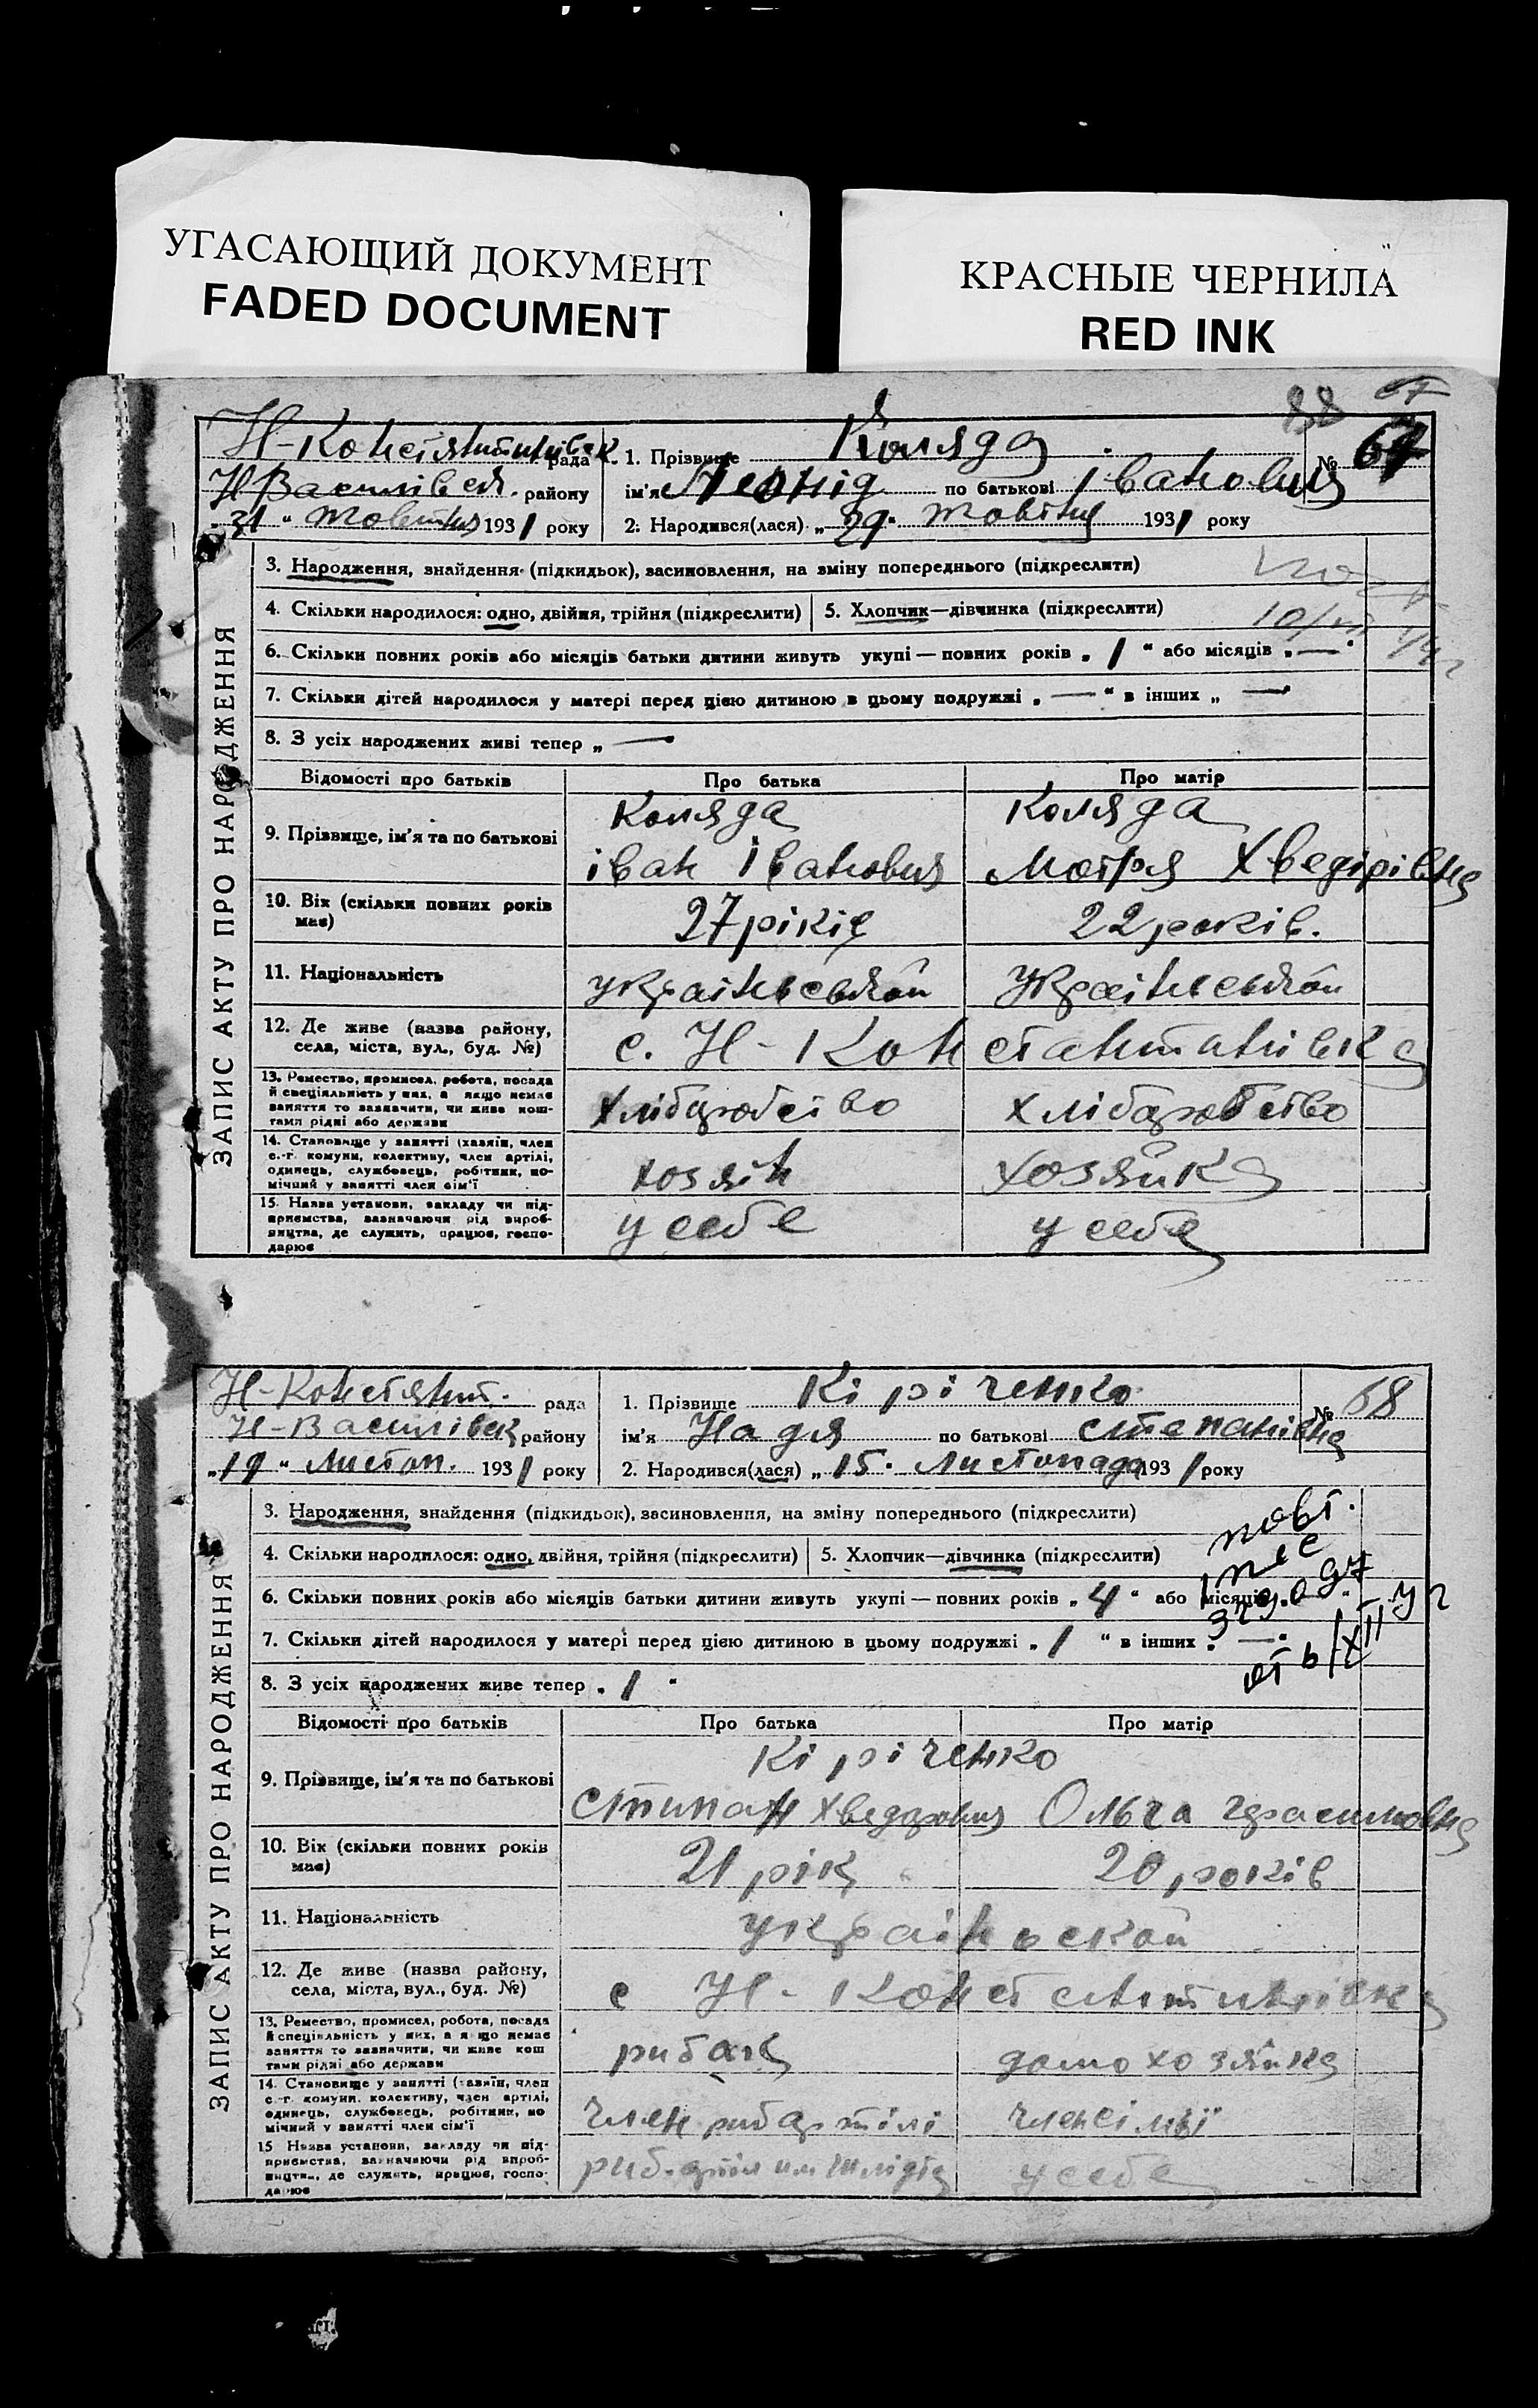 УГАСАЮЩИЙ ДОКУМЕНТ
FADED DOCUMENT
КРАСНЫЕ ЧЕРНИЛА
RED INK
67
Н-Констянтинівск. рада
1. Прізвище Коляда
№ 67
Н Василівск. району
ім'я Леонід по батькові Іванович
„31“ Жовтня 1931 року
2. Народився(лася) „29“ Жовтня 1931 року
ЗАПИС АКТУ ПРО НАРОДЖЕННЯ
3. Народження, знайдення (підкидьок), засиновлення, на зміну попереднього (підкреслити)
4. Скільки народилося: одно, двійня, трійня (підкреслити)
5. Хлопчик—дівчинка (підкреслити)
6. Скільки повних років або місяців батьки дитини живуть укупі — повних років „1“ або місяців „—“
7. Скільки дітей народилося у матері перед цією дитиною в цьому подружжі „—“ в інших „—
8. З усіх народжених живі тепер „—
Відомості про батьків
Про батька
Про матір
9. Прізвище, ім'я та по батькові
Коляда
іван Іванович
Коляда
Мотря Хведірівна
10. Вік (скільки повних років має)
27 ріків
22 років.
11. Національність
українськой
Українськой
12. Де живе (назва району, села, міста, вул., буд. №)
с. Н - Константинівка
13. Ремество, промисел, робота, посада
й спеціяльність у них, а якщо немає
заняття то зазначити, чи живе кош-
тами рідні або держави
Хлібаробство
хлібаробство
14. Становище у занятті (хазяїн, член
с.-г. комуни, колективу, член артілі,
одинець, службовець, робітник, по-
мічний у занятті член сім'ї
хозяїн
хозяйка
15. Назва установи, закладу чи під-
приємства, зазначаючи рід вироб-
ництва, де служить, працює, госпо-
дарює
у себе
у себе
Н-Констянт. рада
1. Прізвище Кіріченко
№ 68
Н-Василівск району
ім'я Надя по батькові Степанівна
„19“ Листоп. 1931 року
2. Народився(лася) „15. Листопада 1931 року
ЗАПИС АКТУ ПРО НАРОДЖЕННЯ
3. Народження, знайдення (підкидьок), засиновлення, на зміну попереднього (підкреслити)
4. Скільки народилося: одно, двійня, трійня (підкреслити)
5. Хлопчик—дівчинка (підкреслити)
6. Скільки повних років або місяців батьки дитини живуть укупі — повних років „4“ або місяців
7. Скільки дітей народилося у матері перед цією дитиною в цьому подружжі „1“ в інших „—“
8. З усіх народжених живе тепер „1“
Відомості про батьків
Про батька
Про матір
9. Прізвище, ім'я та по батькові
Кіріченко
Стипан Хведорович
Ольга Гарасимовна
10. Вік (скільки повних років має)
21 рік
20 років
11. Національність
українськой
12. Де живе (назва району, села, міста, вул., буд. №)
с Н - Констянтинівка
13. Ремество, промисел, робота, посада
й спеціяльність у них, а якщо немає
заняття то зазначити, чи живе кош
тами рідні або держави
рибак
домохозяйка
14. Становище у занятті (хазяїн, член
с.-г. комуни, колективу, член артілі,
одинець, службовець, робітник, по
мічний у занятті член сім'ї
член рибартілі
член сімьї
15 Назва установи, закладу чи під-
приємства, зазначаючи рід вироб-
ництва, де служить, працює, госпо-
дарює
у себе